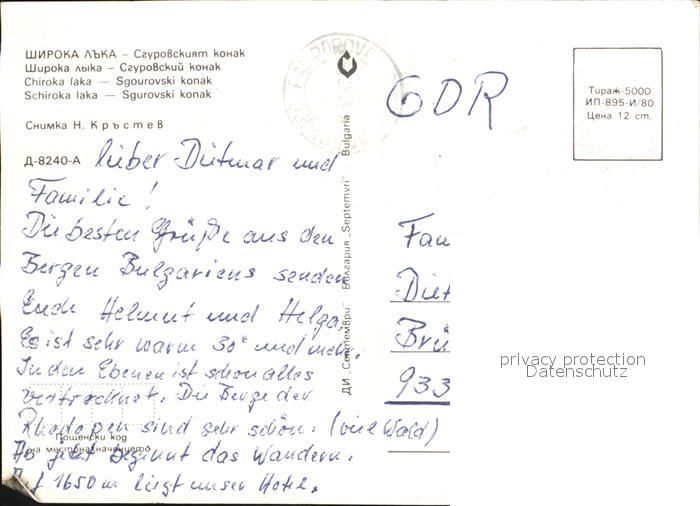 ШИРОКА ЛЪКА – Сгуровският конак
Широка лыка – Сгуровский конак
Chiroka laka — Sgourovski konak
Schiroka laka — Sgurovski konak
Снимка Н. Кръстев
Д-8240-А
lieber Dietmar und
Familie!
Die besten Grüße aus den
Bergen Bulgariens senden
Euch Helmut und Helga.
Es ist sehr warm 30° und mehr.
In den Ebenen ist schon alles
vertrocknet. Die Berge der
Rhodopen sind sehr schön. (viel Wald)
Ab jetzt beginnt das Wandern.
Auf 1650 m liegt unser Hotel.
Пощенски код
на местоназначението
ДИ „Септември" България „Septemvri" Bulgaria
GDR
Тираж-5000
ИП-895-И/80
Цена 12 ст.
Fam
Diet
Brü
933
privacy protection
Datenschutz